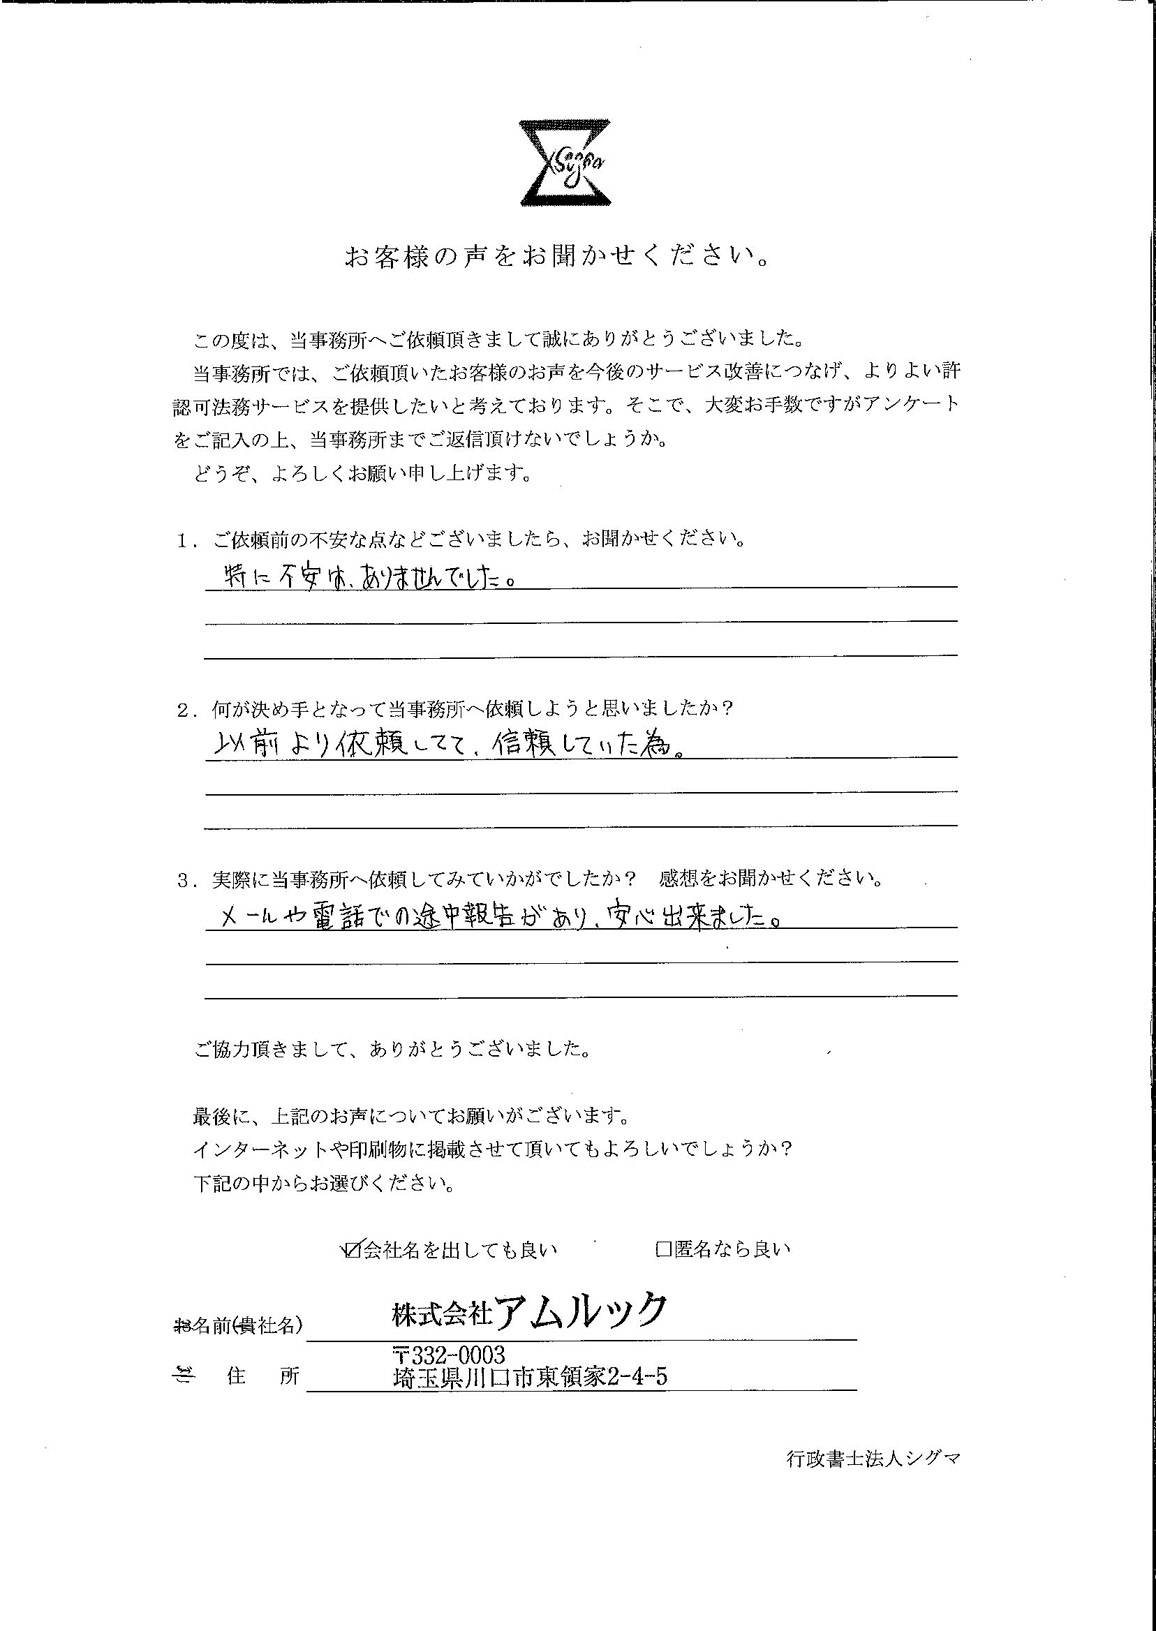 Sigma
お客様の声をお聞かせください。
この度は、当事務所へご依頼頂きまして誠にありがとうございました。
当事務所では、ご依頼頂いたお客様のお声を今後のサービス改善につなげ、よりよい許
認可法務サービスを提供したいと考えております。そこで、大変お手数ですがアンケート
をご記入の上、当事務所までご返信頂けないでしょうか。
どうぞ、よろしくお願い申し上げます。
１．ご依頼前の不安な点などございましたら、お聞かせください。
特に不安は、ありませんでした。
２．何が決め手となって当事務所へ依頼しようと思いましたか？
以前より依頼してて、信頼していた為。
３．実際に当事務所へ依頼してみていかがでしたか？　感想をお聞かせください。
メールや電話での途中報告があり、安心出来ました。
ご協力頂きまして、ありがとうございました。
最後に、上記のお声についてお願いがございます。
インターネットや印刷物に掲載させて頂いてもよろしいでしょうか？
下記の中からお選びください。
☑会社名を出しても良い　□匿名なら良い
お名前(貴社名) 株式会社アムルック
〒332-0003
ご住所 埼玉県川口市東領家2-4-5
行政書士法人シグマ